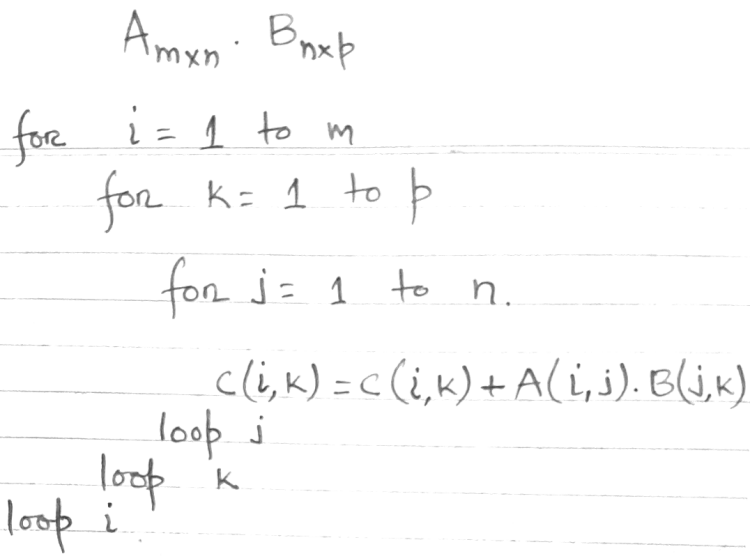 A m×n . B n×p
for i = 1 to m
for k = 1 to p
for j = 1 to n.
C(i,k) = C(i,k) + A(i,j). B(j,k)
loop j
loop k
loop i